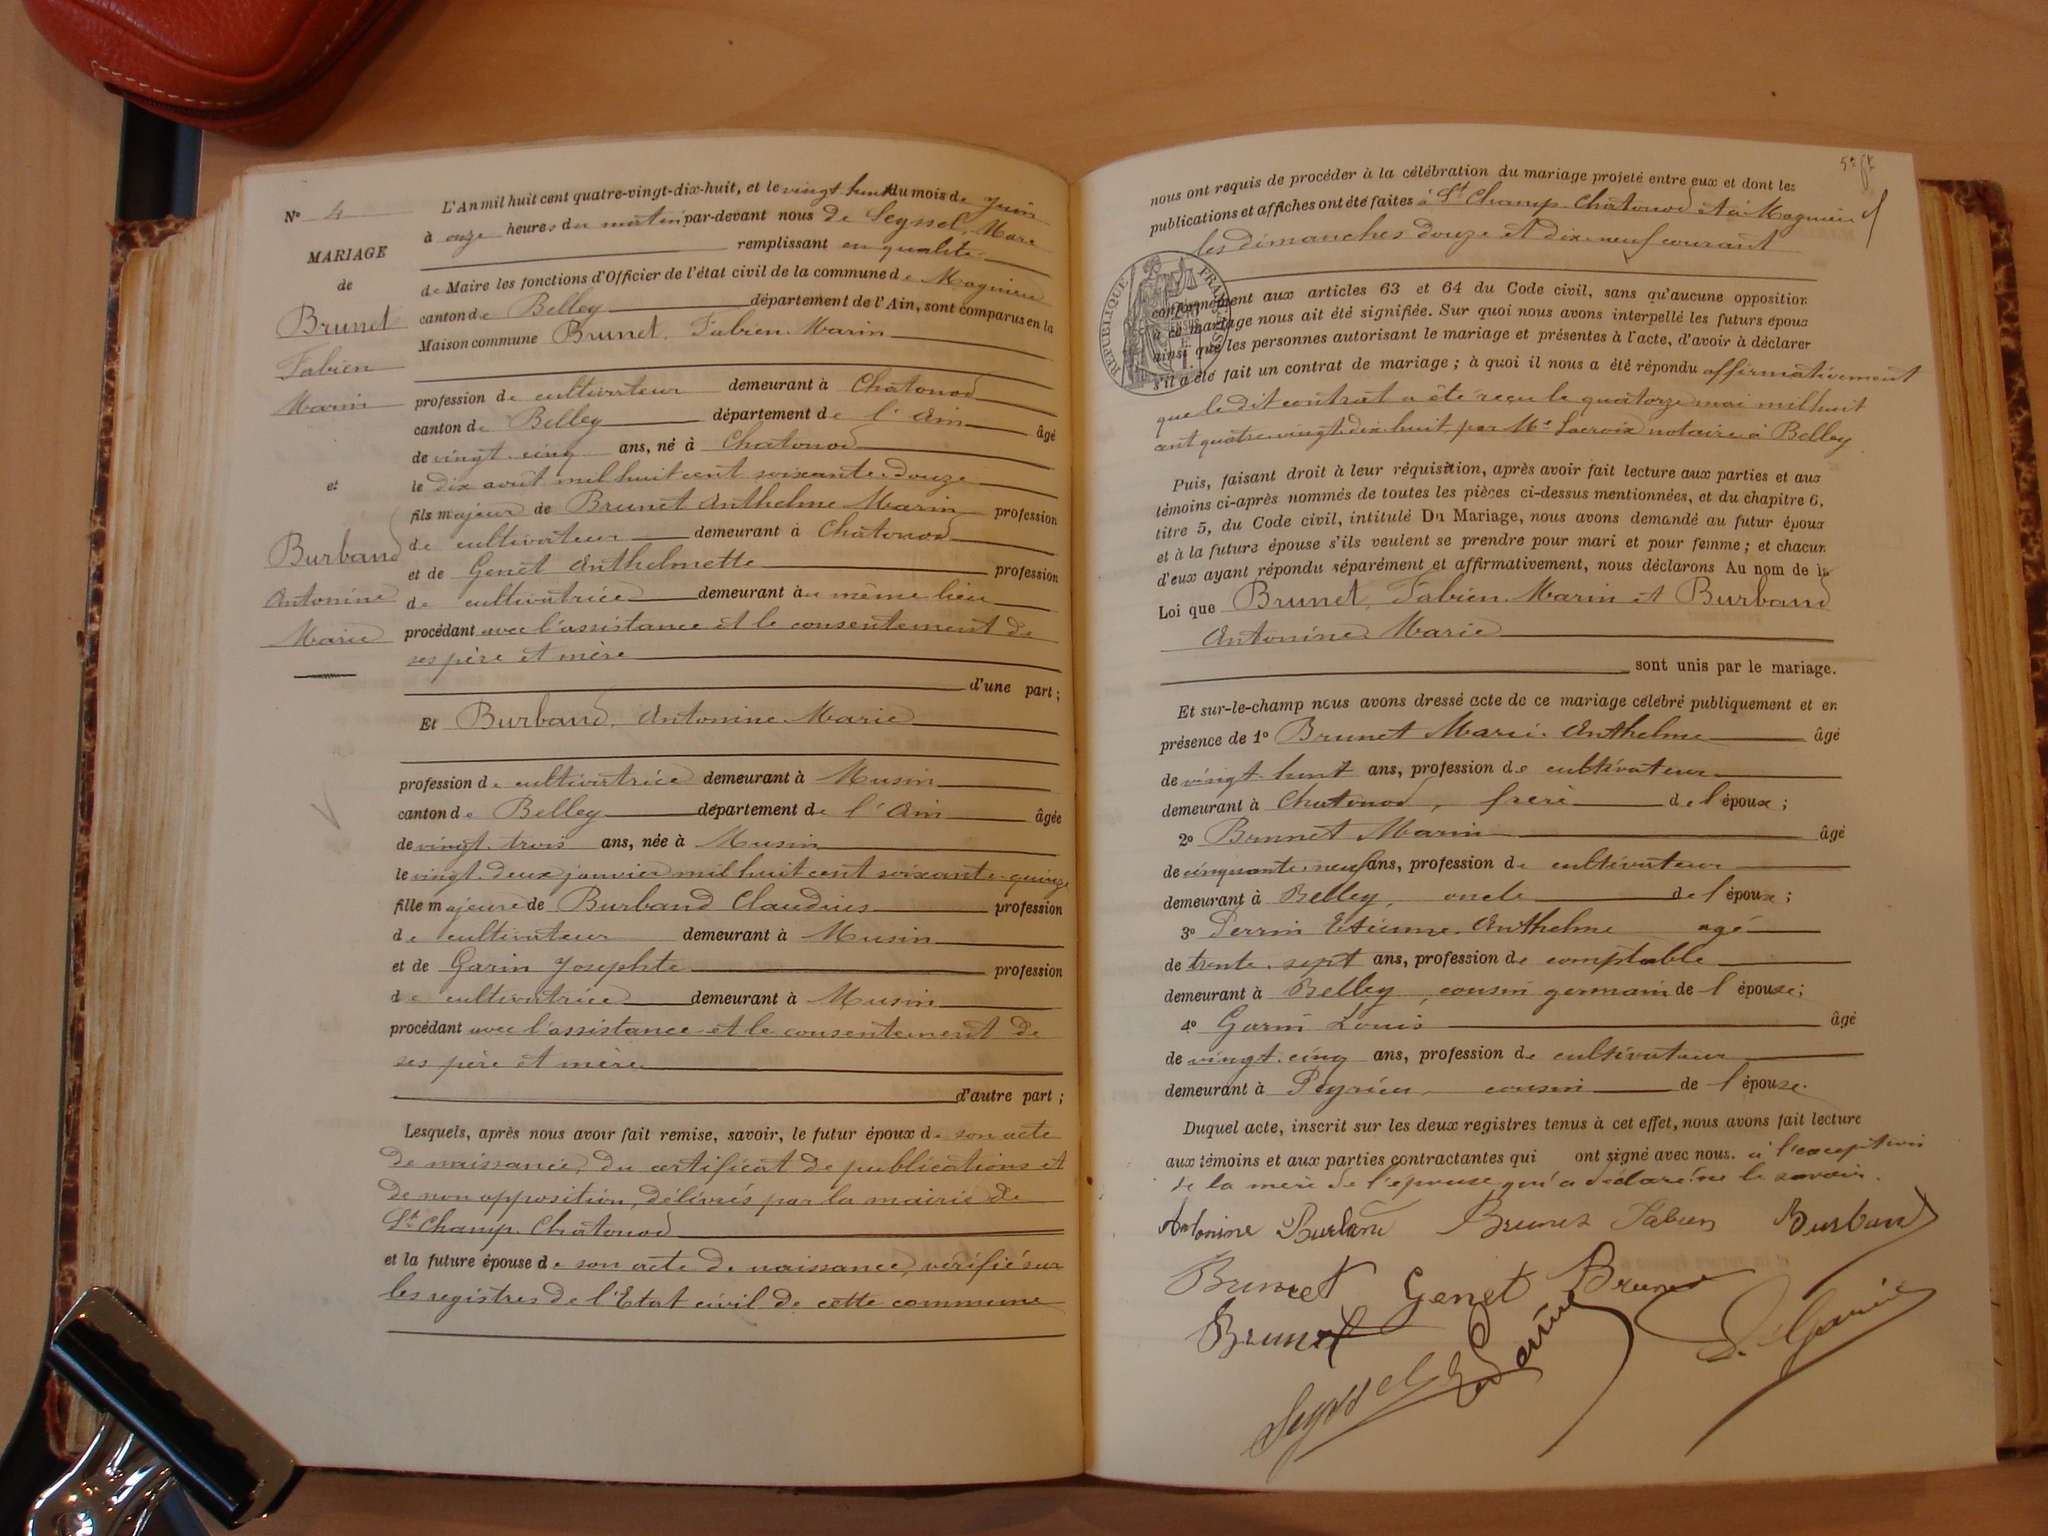 N° 4
MARIAGE
de
Brunet
Fabien
Marin
et
Burband
Antonine
Marie
L'An mil huit cent quatre-vingt-dix-huit, et le vingt huit du mois de Juin
à onze heures du matin par-devant nous de Seyssel, Marc
remplissant en qualité
de Maire les fonctions d'Officier de l'état civil de la commune de Magnieu
canton de Belley département de l'Ain, sont comparus en la
Maison commune Brunet, Fabien Marin
profession de cultivateur demeurant à Chatonod
canton de Belley département de l'Ain âgé
de vingt-cinq ans, né à Chatonod
le dix août mil huit cent soixante-douze
fils majeur de Brunet Anthelme Marin profession
de cultivateur demeurant à Chatonod
et de Genet Anthelmette profession
de cultivatrice demeurant au même lieu
procédant avec l'assistance et le consentement de
ses père et mère
d'une part ;
Et Burband, Antonine Marie
profession de cultivatrice demeurant à Musin
canton de Belley département de l'Ain âgée
de vingt-trois ans, née à Musin
le vingt-deux janvier mil huit cent soixante-quinze
fille majeure de Burband Claudius profession
de cultivateur demeurant à Musin
et de Garin Josephte profession
de cultivatrice demeurant à Musin
procédant avec l'assistance et le consentement de
ses père et mère
d'autre part ;
Lesquels, après nous avoir fait remise, savoir, le futur époux de son acte
de naissance, du certificat de publications et
de non opposition, délivrés par la mairie de
St Champ-Chatonod
et la future épouse de son acte de naissance, vérifié sur
les registres de l'Etat civil de cette commune
nous ont requis de procéder à la célébration du mariage projeté entre eux et dont les
publications et affiches ont été faites à St Champ-Chatonod et à Magnieu
les dimanches douze et dix-neuf courant
RÉPUBLIQUE FRANÇAISE
conformément aux articles 63 et 64 du Code civil, sans qu'aucune opposition
à ce mariage nous ait été signifiée. Sur quoi nous avons interpellé les futurs époux
ainsi que les personnes autorisant le mariage et présentes à l'acte, d'avoir à déclarer
s'il a été fait un contrat de mariage ; à quoi il nous a été répondu affirmativement
que le dit contrat a été reçu le quatorze mai mil huit
cent quatre-vingt-dix-huit, par Me Lacroix notaire à Belley
Puis, faisant droit à leur réquisition, après avoir fait lecture aux parties et aux
témoins ci-après nommés de toutes les pièces ci-dessus mentionnées, et du chapitre 6,
titre 5, du Code civil, intitulé Du Mariage, nous avons demandé au futur époux
et à la future épouse s'ils veulent se prendre pour mari et pour femme ; et chacun
d'eux ayant répondu séparément et affirmativement, nous déclarons Au nom de la
Loi que Brunet, Fabien Marin et Burband
Antonine Marie
sont unis par le mariage.
Et sur-le-champ nous avons dressé acte de ce mariage célébré publiquement et en
présence de 1° Brunet Marie Anthelme âgé
de vingt-huit ans, profession de cultivateur
demeurant à Chatonod, frère de l'époux ;
2° Brunet Marin âgé
de cinquante-neuf ans, profession de cultivateur
demeurant à Belley, oncle de l'époux ;
3° Perrin Etienne Anthelme agé
de trente-sept ans, profession de comptable
demeurant à Belley, cousin germain de l'épouse ;
4° Garin Louis âgé
de vingt-cinq ans, profession de cultivateur
demeurant à Peyrieu, cousin de l'épouse.
Duquel acte, inscrit sur les deux registres tenus à cet effet, nous avons fait lecture
aux témoins et aux parties contractantes qui ont signé avec nous. à l'exception
de la mère de l'épouse qui a déclaré ne le savoir.
Antonine Burband Brunet Fabien Burband
Brunet Genet Brunet
Brunet Perrin L. Garin
Seyssel